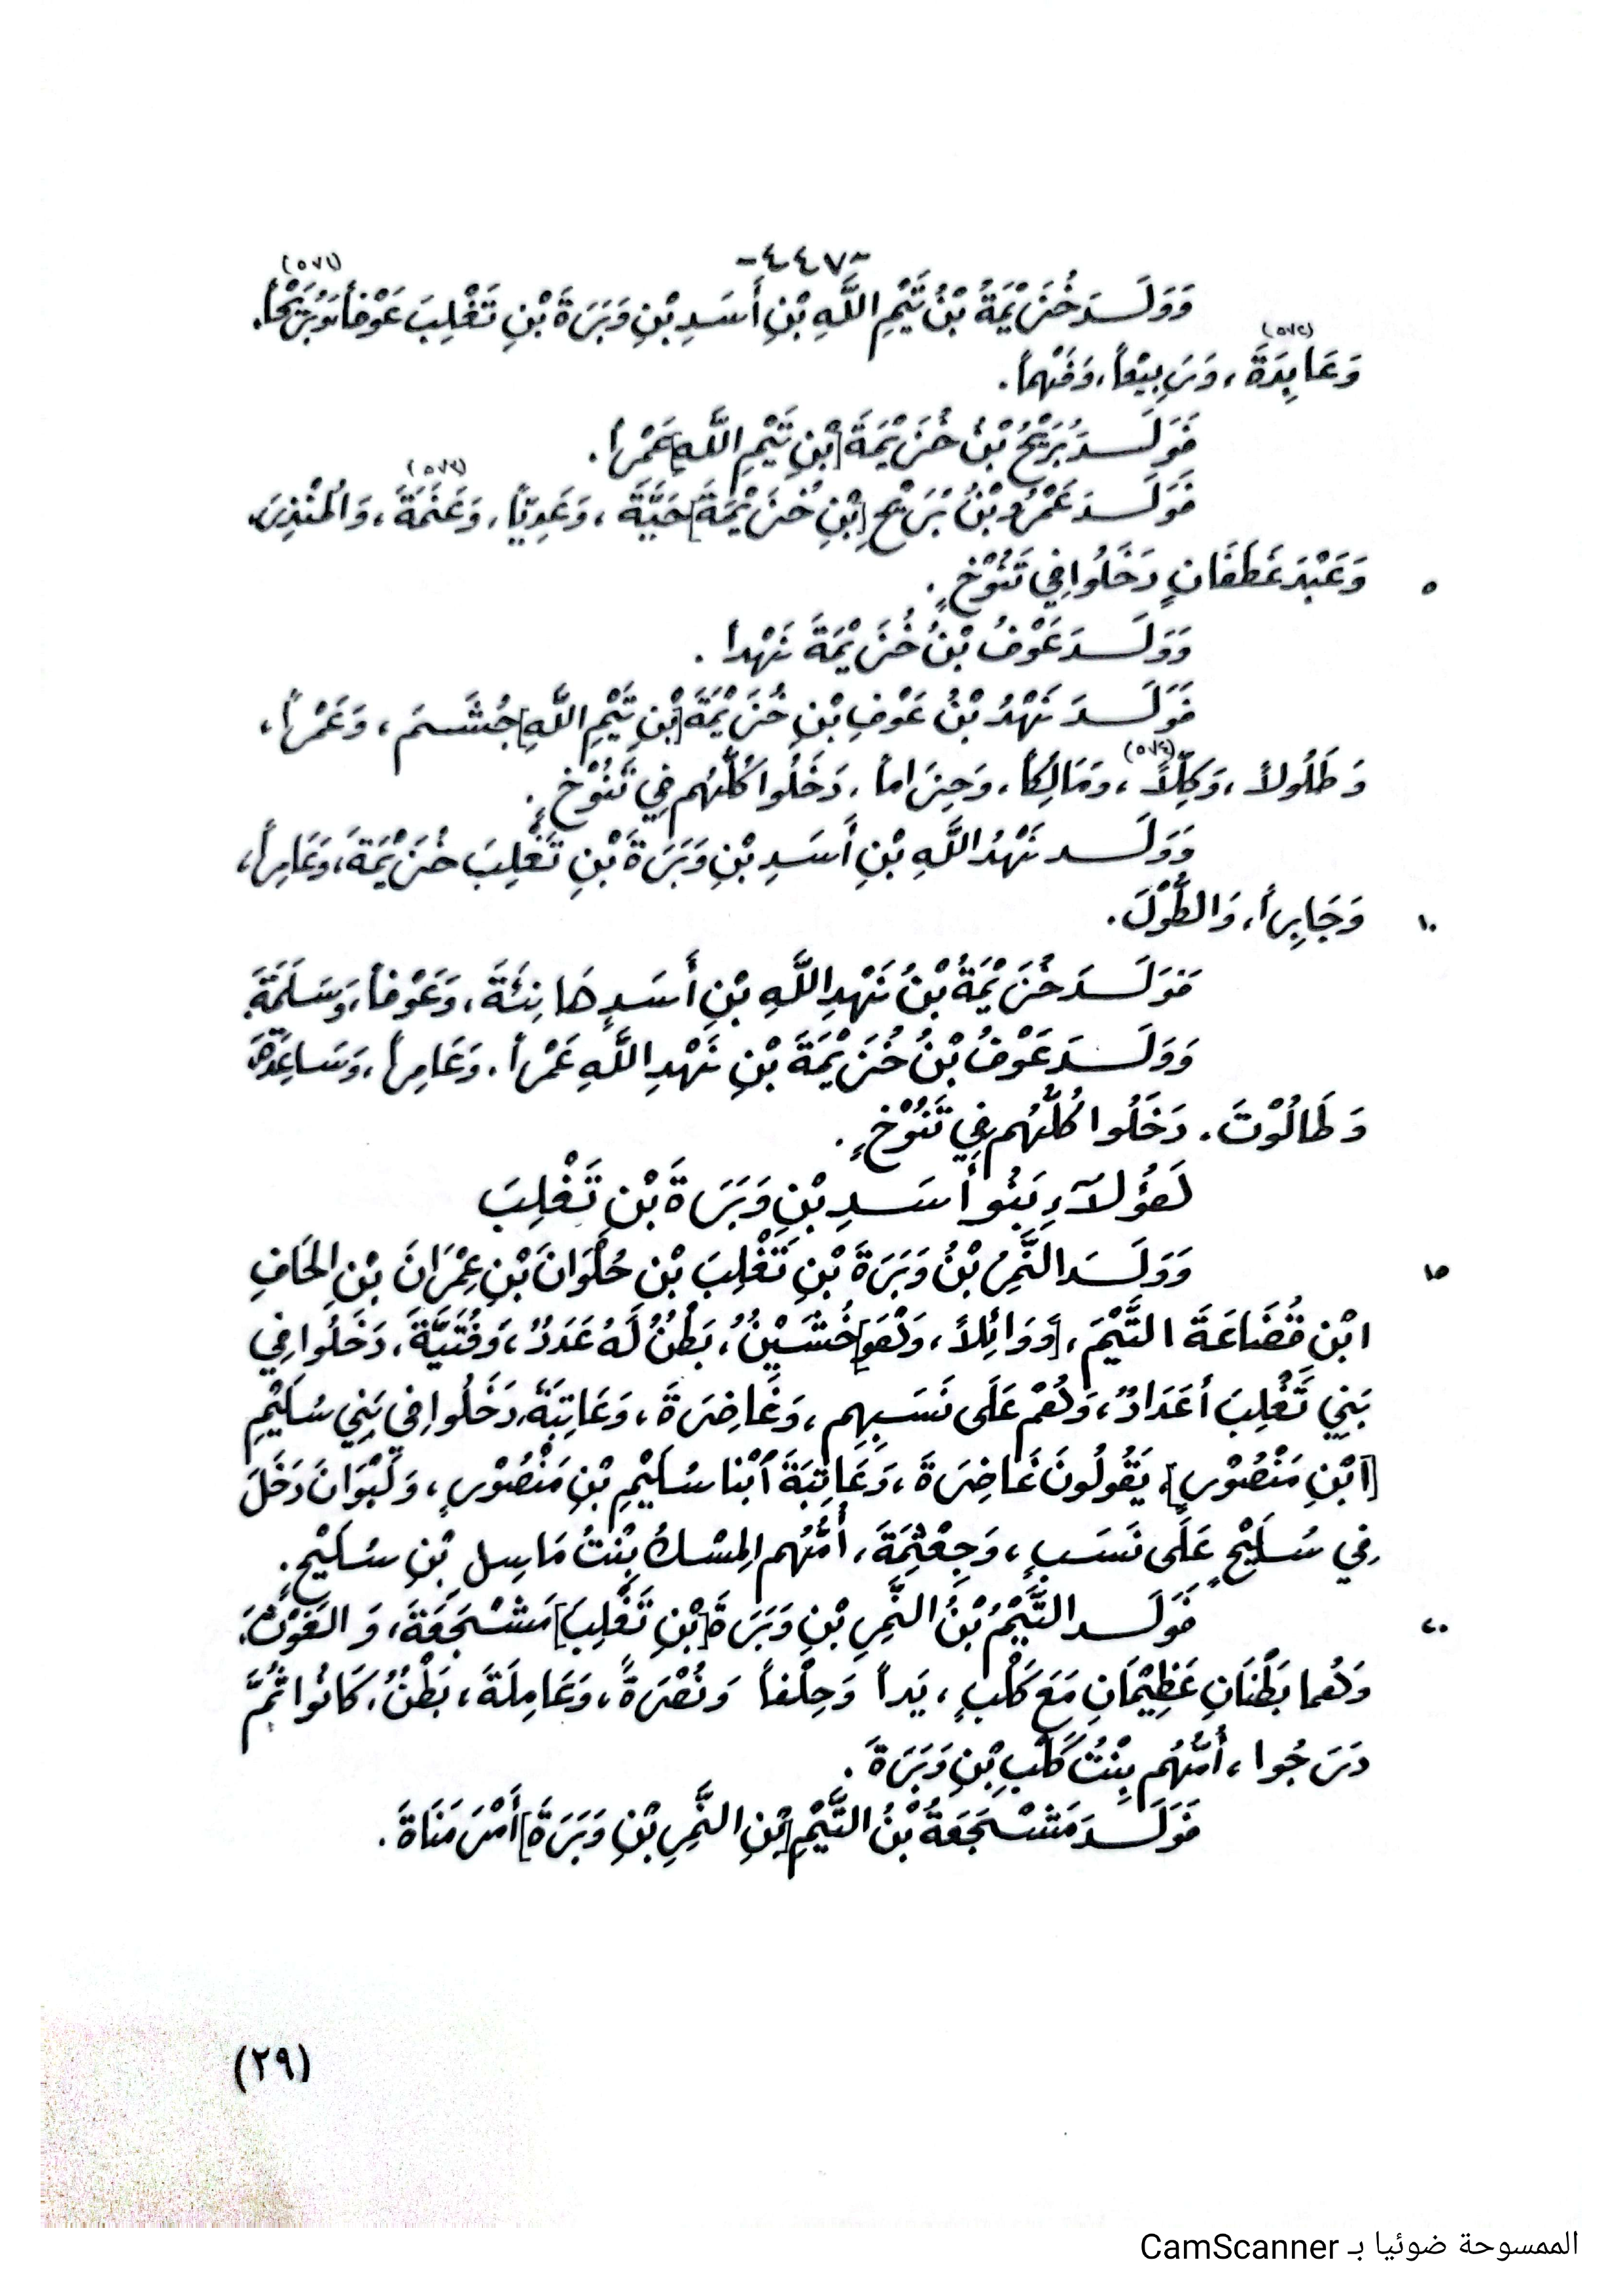 -٤٤٧-
وَوَلَــدَ خُزَيْمَةُ بْنُ تَيْمِ اللَّهِ بْنِ أَسَدِ بْنِ وَبَرَةَ بْنِ تَغْلِبَ عَوْفاً، وَبُرَيْحاً، (٥٧١)
وَعَايِدَةَ (٥٧٢)، وَرَبِيْعاً، وَفَهْماً.
فَوَلَــدَ بُرَيْحُ بْنُ خُزَيْمَةَ [بْنِ تَيْمِ اللَّهِ] عَمْراً.
فَوَلَــدَ عَمْرُو بْنُ بُرَيْحِ [بْنِ خُزَيْمَةَ] حَيَّةَ، وَعَدِيّاً، وَعَنَمَةَ (٥٧٣)، وَالمُنْذِرَ،
٥ وَعَبْدَ غَطَفَانٍ دَخَلُوا فِي تَنُوْخٍ.
وَوَلَــدَ عَوْفُ بْنُ خُزَيْمَةَ نَهْداً.
فَوَلَــدَ نَهْدُ بْنُ عَوْفِ بْنِ خُزَيْمَةَ [بْنِ تَيْمِ اللَّهِ] جُشَــمَ، وَعَمْراً،
وَطَلُولاً، وَكِلّاً (٥٧٤)، وَمَالِكاً، وَحِزَاماً، دَخَلُوا كُلُّهُم فِي تَنُوْخٍ.
وَوَلَــد نَهْدُ اللَّهِ بْنِ أَسَدِ بْنِ وَبَرَةَ بْنِ تَغْلِبَ خُزَيْمَةَ، وَعَامِراً،
١٠ وَجَابِراً، وَالطُّوْلَ.
فَوَلَــدَ خُزَيْمَةُ بْنُ نَهْدِ اللَّهِ بْنِ أَسَدٍ هَانِئَةَ، وَعَوْفاً، وَسَلَمَةَ.
وَوَلَــدَ عَوْفُ بْنُ خُزَيْمَةَ بْنِ نَهْدِ اللَّهِ عَمْراً، وَعَامِراً، وَسَاعِدَةَ،
وَطَالُوْتَ. دَخَلُوا كُلُّهُم فِي تَنُوْخٍ.
هَؤُلَآءِ بَنُو أَسَــدِ بْنِ وَبَرَةَ بْنِ تَغْلِبَ
١٥ وَوَلَــدَ النَّمِرُ بْنُ وَبَرَةَ بْنِ تَغْلِبَ بْنِ حُلْوَانَ بْنِ عِمْرَانَ بْنِ الحَافِ
ابْنِ قُضَاعَةَ التَّيْمَ، [وَوَائِلاً، وَهْوَ] خُشَيْنٌ، بَطْنٌ لَهُ عَدَدٌ، وَفُتَيَّةَ، دَخَلُوا فِي
بَنِي تَغْلِبَ أعْدَادٌ، وَهُمْ عَلَى نَسَبِهِم، وَغَاضِرَةَ، وَعَاتِبَةَ، دَخَلُوا فِي بَنِي سُلَيْمِ
[ابْنِ مَنْصُوْرٍ]. يَقُولُونَ غَاضِرَةَ، وَعَاتِبَةَ ابْنا سُلَيْمِ بْنِ مَنْصُوْرٍ، وَلَبْوَانَ دَخَلَ
فِي سُلَيْحٍ عَلَى نَسَبٍ، وَجِعْثِمَةَ، أُمُّهُم المِسْكُ بِنْتُ مَاسِلِ بْنِ سُلَيْحٍ.
٢٠ فَوَلَــد التَّيْمُ بْنُ النَّمِرِ بْنِ وَبَرَةَ [بْنِ تَغْلِبَ] مَشْــجَعَةَ، وَالغَوْثَ،
وَهُما بَطْنَانِ عَظِيْمَانِ مَعَ كَلْبٍ، يَداً وَحِلْفاً وَنُصْرَةً، وَعَامِلَةَ، بَطْنٌ، كَانُوا ثُمَّ
دَرَجُوا، أُمُّهُم بِنْتُ كَلْبِ بْنِ وَبَرَةَ.
فَوَلَــدَ مَشْــجَعَةُ بْنُ التَّيْمِ [بْنِ النَّمِرِ بْنِ وَبَرَةَ] أَمْرَ مَنَاةَ.
(٢٩)
الممسوحة ضوئيا بـ CamScanner